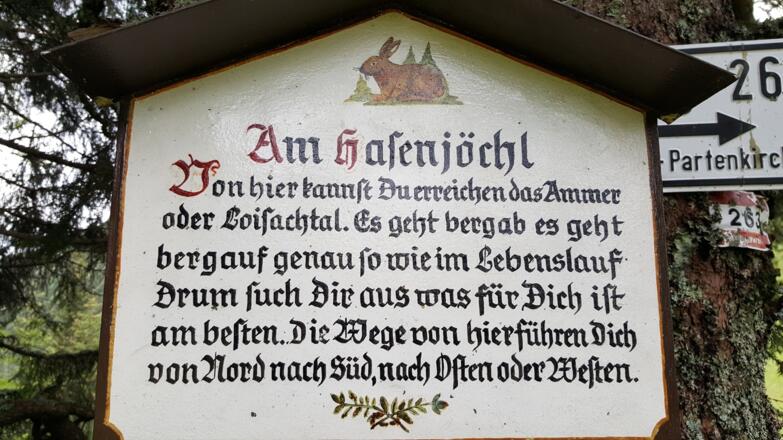 Am Hasenjöchl
Von hier kannst Du erreichen das Ammer
oder Loisachtal. Es geht bergab es geht
bergauf genau so wie im Lebenslauf.
Drum such Dir aus was für Dich ist
am besten. Die Wege von hier führen Dich
von Nord nach Süd, nach Osten oder Westen.
26
-Partenkirch
263